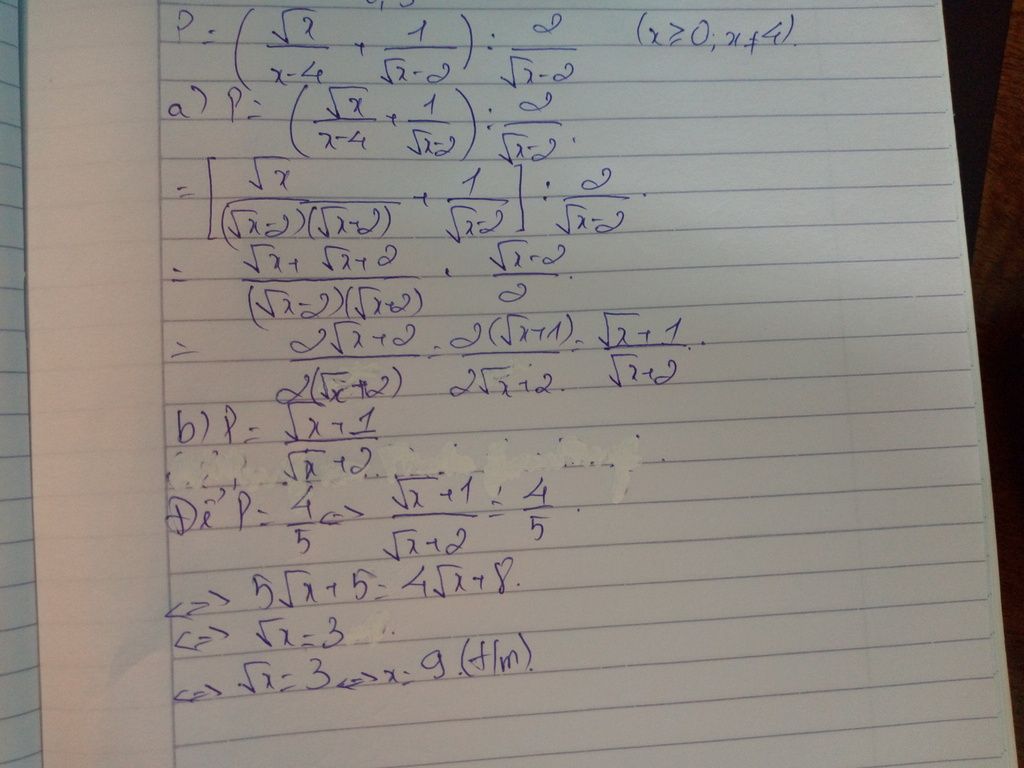 P = ( √x / x-4 + 1 / √x-2 ) : 2 / √x-2 (x ≥ 0; x ≠ 4).
a) P = ( √x / x-4 + 1 / √x-2 ) : 2 / √x-2 .
= [ √x / (√x-2)(√x+2) + 1 / √x-2 ] : 2 / √x-2 .
= √x + √x+2 / (√x-2)(√x+2) . √x-2 / 2 .
= 2√x+2 / 2(√x+2) = 2(√x+1) / 2√x+2. = √x+1 / √x+2 .
b) P = √x+1 / √x+2
Để P = 4 / 5 <=> √x+1 / √x+2 = 4 / 5 .
<=> 5√x+5 = 4√x+8.
<=> √x = 3
<=> √x = 3 <=> x = 9 (t/m).